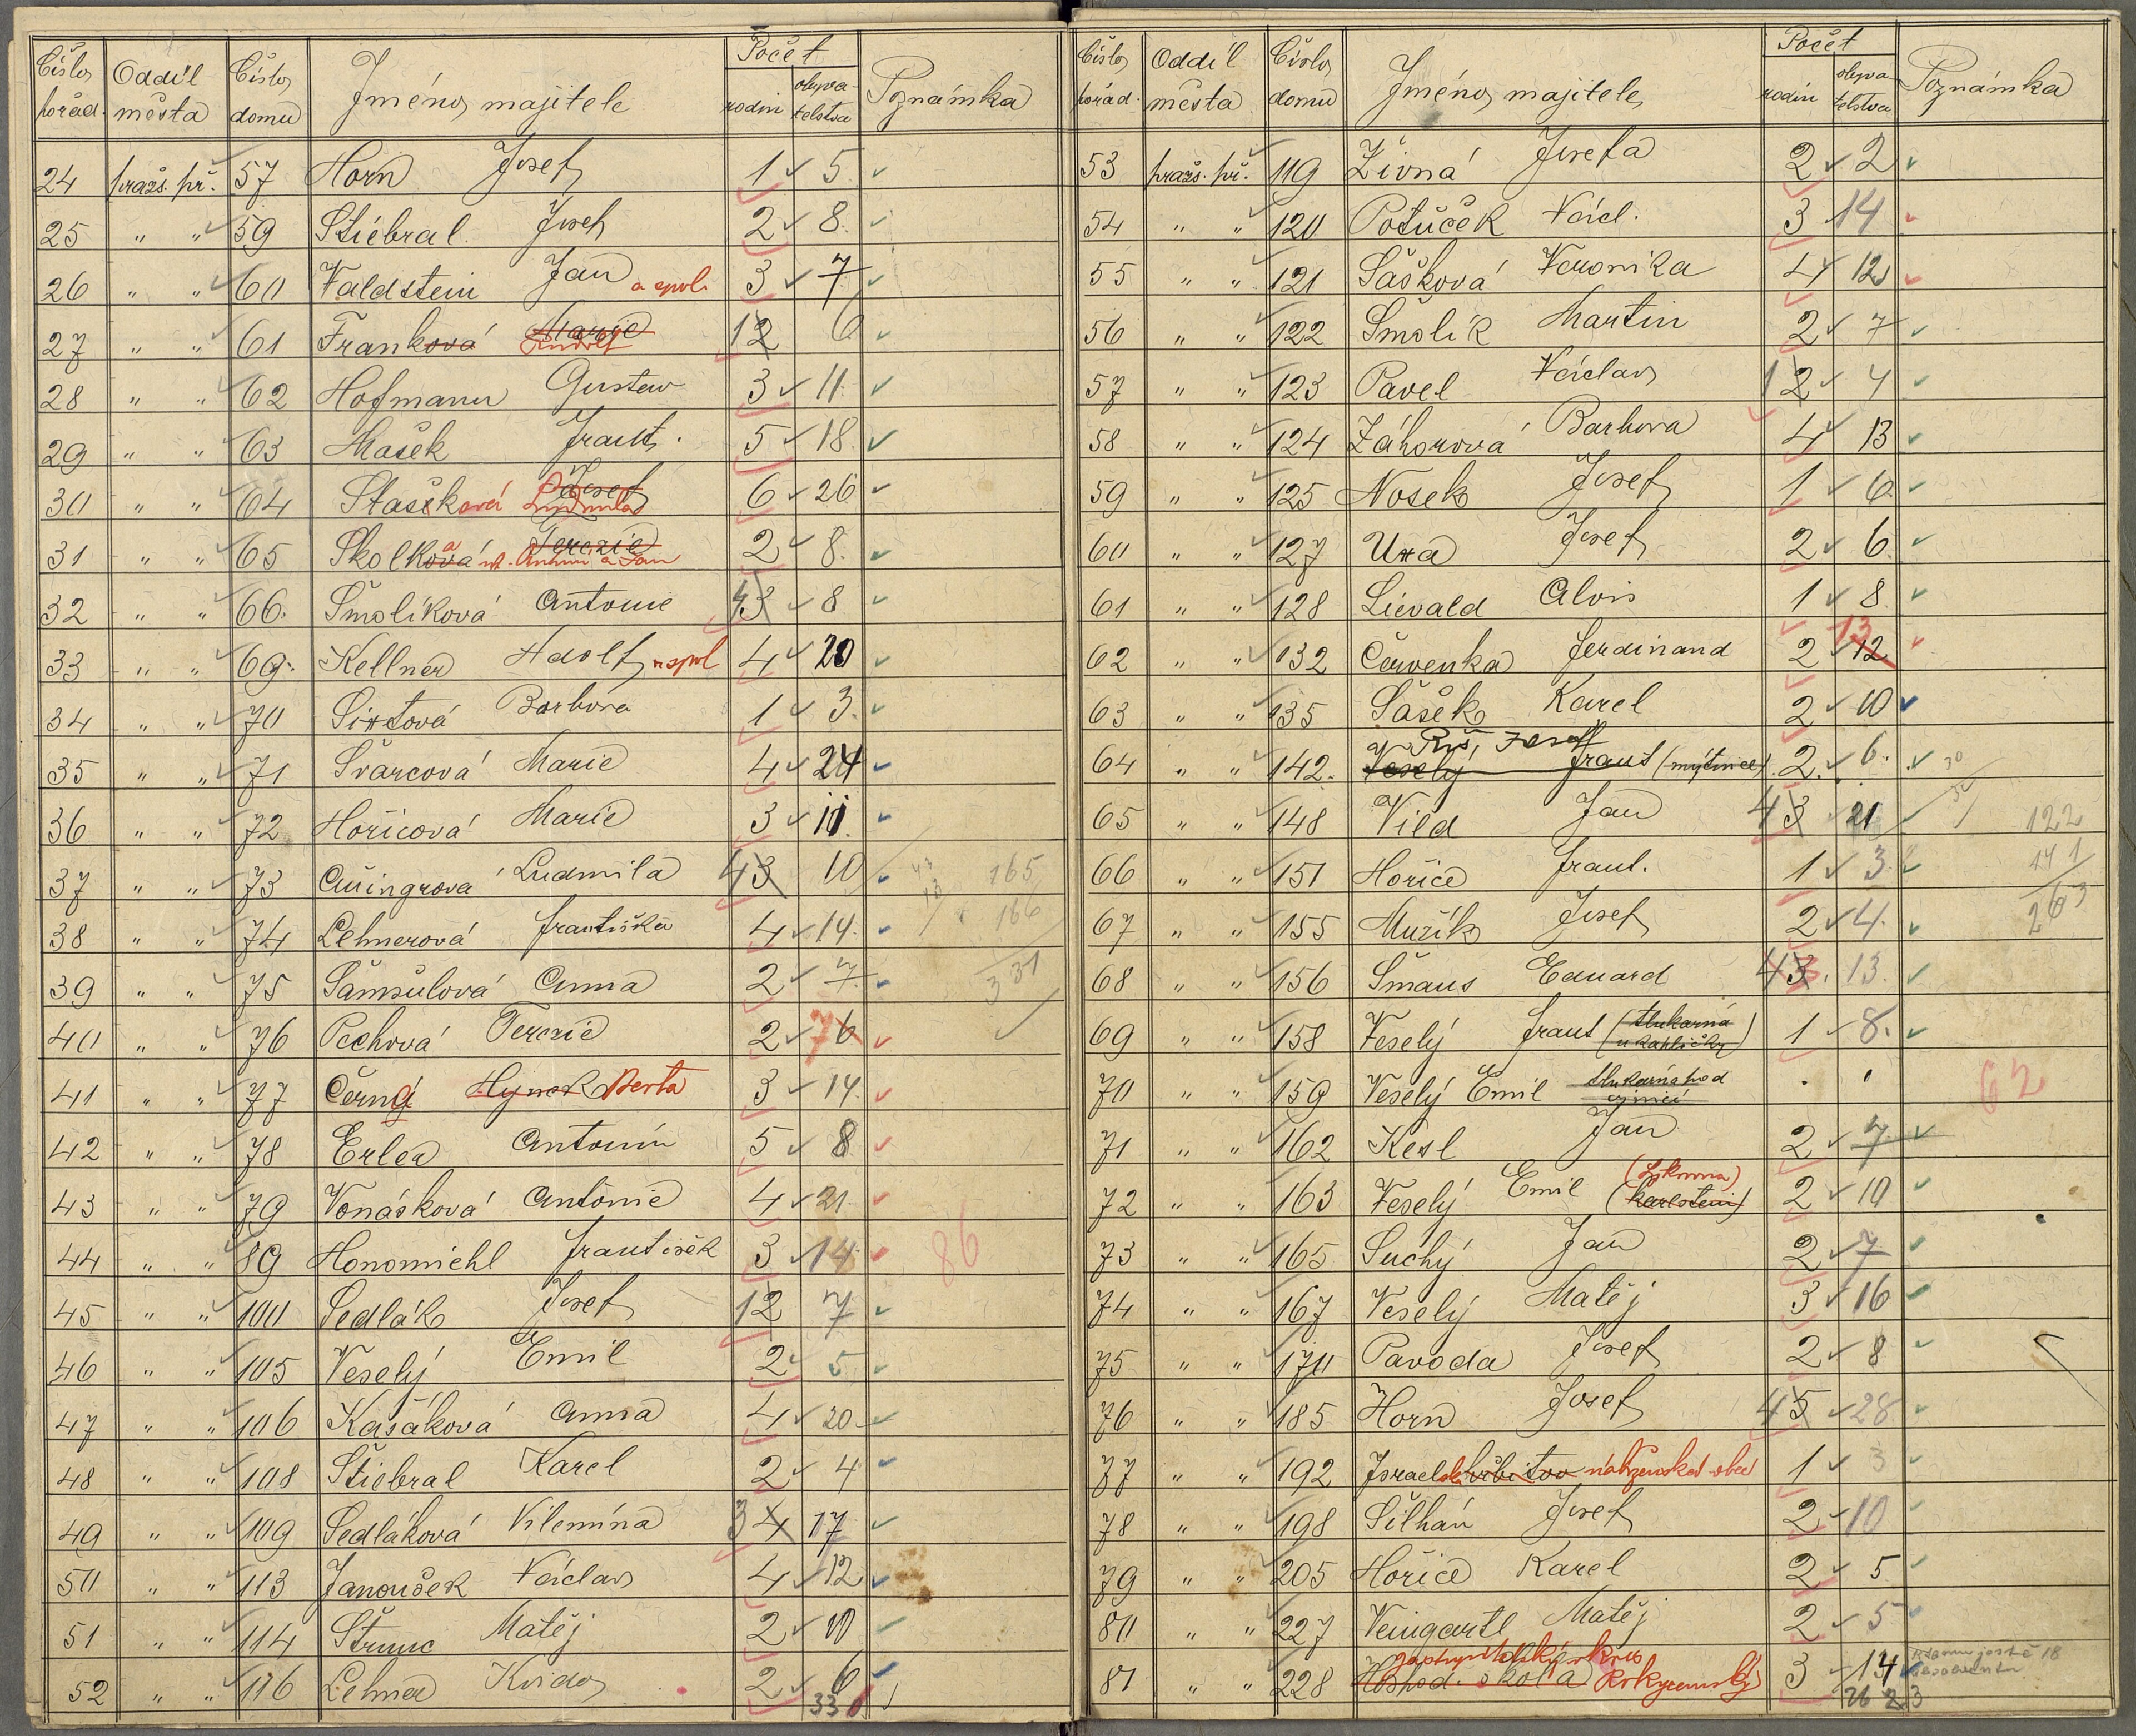 Číslo pořad. Oddíl města Číslo domu Jméno majitele Počet rodin obyvatelstva Poznámka
24 praž. př. 57 Horn Josef 1 5
25 " " 59 Stiebral Josef 2 8.
26 " " 60 Valdstein Jan a spol. 3 7
27 " " 61 Franková Marie Rudolf 1 2 6
28 " " 62 Hofmann Gustav 3 11.
29 " " 63 Mašek Frant. 5 18.
30 " " 64 Stašková Josef Ludmila 6 26
31 " " 65 Skolková Terezie a Jan 2 8.
32 " " 66. Smolíková Antonie 4 3 8
33 " " 69. Kellner Adolf a spol 4 20
34 " " 70 Sixtová Barbora 1 3.
35 " " 71 Švarcová Marie 4 24
36 " " 72 Hořicová Marie 3 11.
37 " " 73 Ludmila 4 3 10 165
38 " " 74 Lehnerová Františka 4 14. 166
39 " " 75 Šamšulová Anna 2 7. 331
40 " " 76 Pechová Terezie 2 7 6
41 " " 77 Černý Hynek Berta 3 14.
42 " " 78 Erler Antonín 5 8
43 " " 79 Vonásková Antonie 4 21.
44 " " 89 Honomichl František 3 14. 86
45 " " 100 Sedlák Josef 1 2 7
46 " " 105 Veselý Emil 2 5
47 " " 106 Kašáková Anna 4 20
48 " " 108 Štiebral Karel 2 4
49 " " 109 Sedláková Vilemína 3 4 17
50 " " 113 Janoušek Václav 4 12
51 " " 114 Štrunc Matěj 2 10
52 " " 116 Lehner Kvido 2 6
33
Číslo pořad. Oddíl města Číslo domu Jméno majitele Počet rodin obyvatelstva Poznámka
53 praž. př. 119 Živná Josefa 2 2
54 " " 120 Potůček Václ. 3 14
55 " " 121 Šašková Veronika 4 12
56 " " 122 Smolík Martin 2 7
57 " " 123 Pavel Václav 1 2 4
58 " " 124 Záhorová Barbora 4 13
59 " " 125 Nosek Josef 1 6.
60 " " 127 Uxa Josef 2 6.
61 " " 128 Lievald Alois 1 8
62 " " 132 Červenka Ferdinand 2 13 12
63 " " 135 Šašek Karel 2 10
64 " " 142. Veselý Frant (mýtnice) Josef 2. 6. 30
65 " " 148 Vild Jan 4 3 21 122
66 " " 151 Hořice Frant. 1 3. 141
67 " " 155 Mužík Josef 2 4. 263
68 " " 156 Šmaus Eduard 4 3. 13.
69 " " 158 Veselý Frant (tlukárna u kapličky) 1 8.
70 " " 159 Veselý Emil tlukárna pod . . 62
71 " " 162 Kesl Jan 2 7
72 " " 163 Veselý Emil (Karlstein) 2 10
73 " " 165 Suchý Jan 2 7
74 " " 167 Veselý Matěj 3 16
75 " " 170 Pavoda Josef 2 8
76 " " 185 Horn Josef 4 5 28
77 " " 192 Israel. hřbitov obec 1 3
78 " " 198 Šilhán Josef 2 10
79 " " 205 Hořice Karel 2 5
80 " " 227 Veingartl Matěj 2 5
81 " " 228 Hosp. škola Rokycanský 3 14 ještě 18
26 2 3